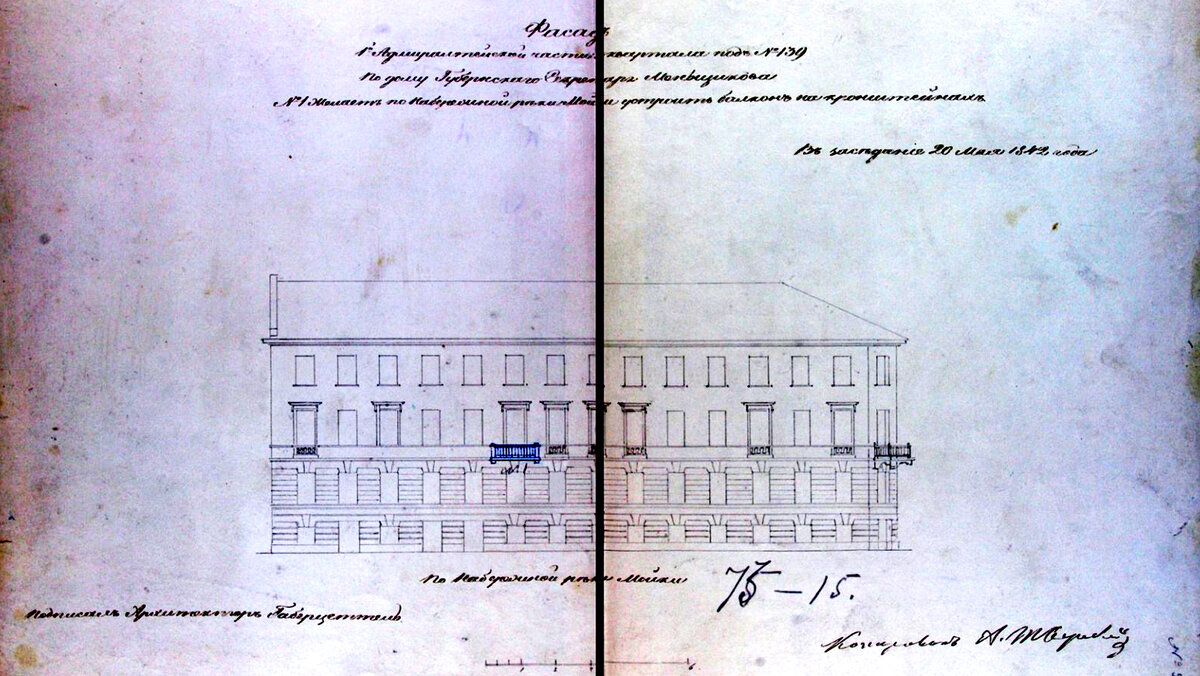 Фасадъ
1й Адмиралтейской части квартала подъ № 139
По дому Губернскаго Секретаря Меньщикова
№ 1 Желаетъ по Набережной рѣки Мойки устроить балконъ на кронштейнахъ
Въ засѣданіе 20 Мая 1842 года
№ 1.
По Набережной рѣки Мойки
75 – 15.
Подписалъ Архитекторъ Габерцеттель
Копировалъ А.